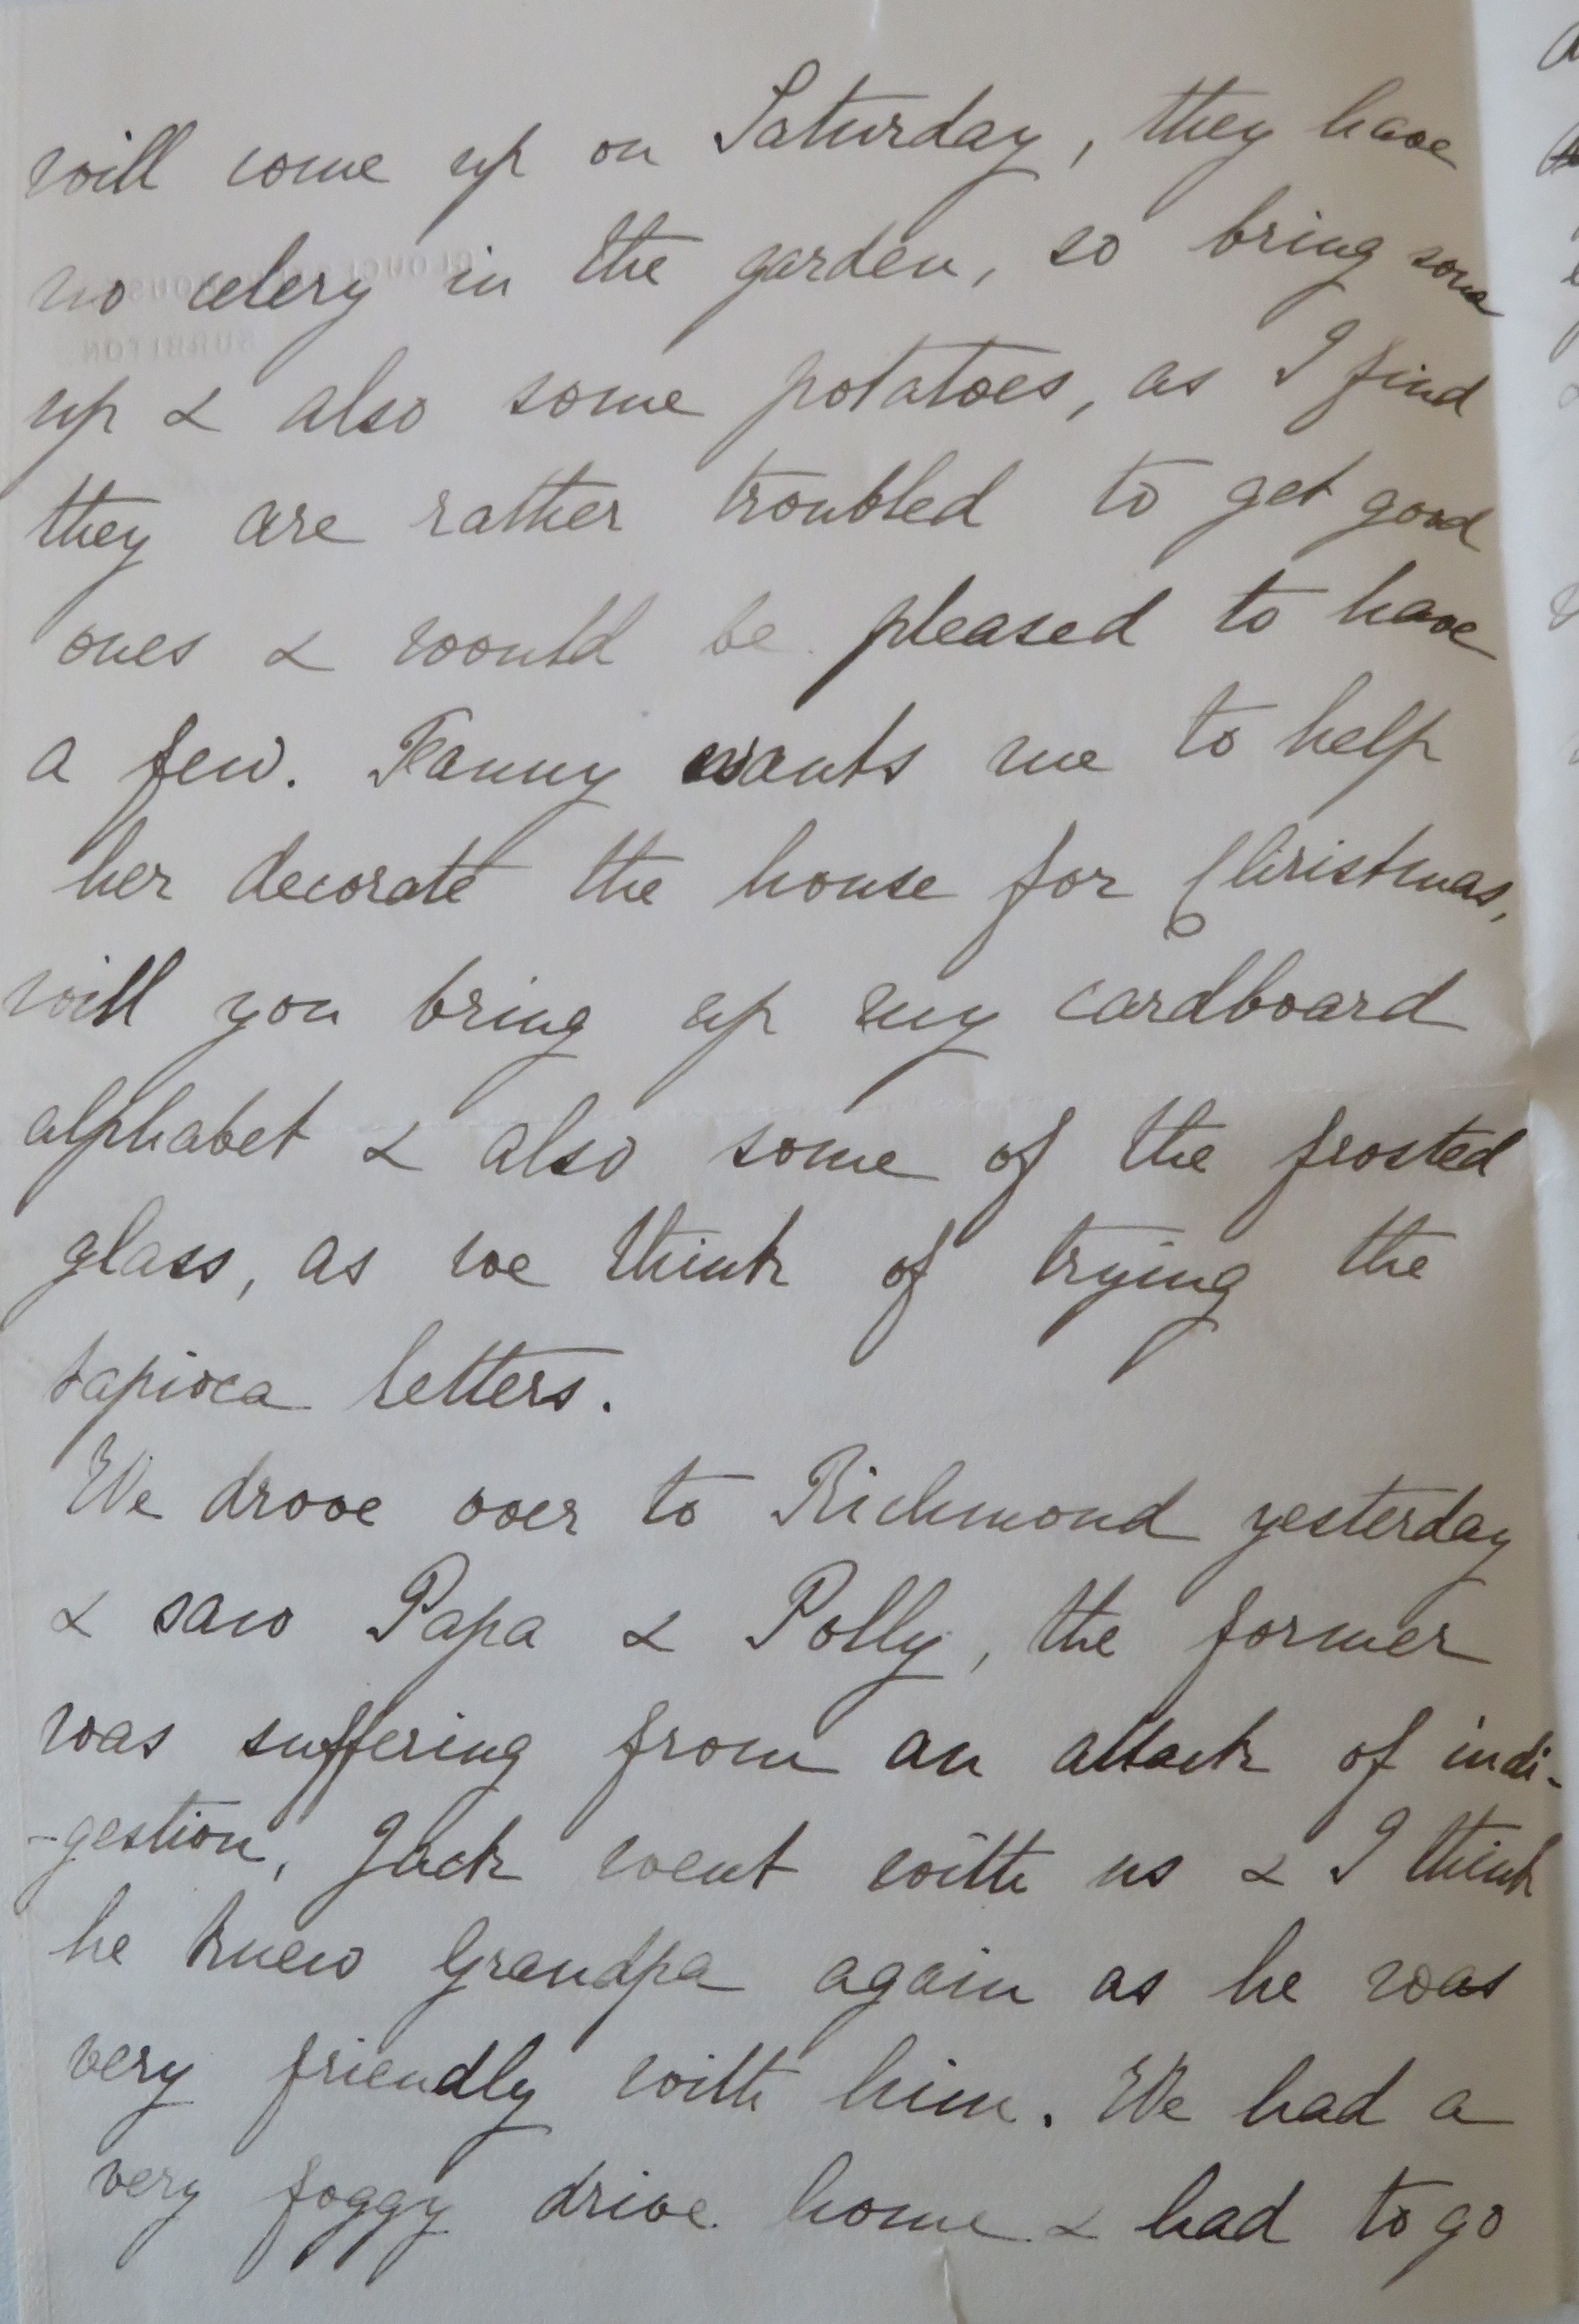 will come up on Saturday, they have
no celery in the garden, so bring some
up & also some potatoes, as I find
they are rather troubled to get good
ones & would be pleased to have
a few. Fanny wants me to help
her decorate the house for Christmas,
will you bring up my cardboard
alphabet & also some of the frosted
glass, as we think of trying the
tapioca letters.
We drove over to Richmond yesterday
& saw Papa & Polly, the former
was suffering from an attack of indi-
-gestion, Jack went with us & I think
he knew Grandpa again as he was
very friendly with him. We had a
very foggy drive home & had to go